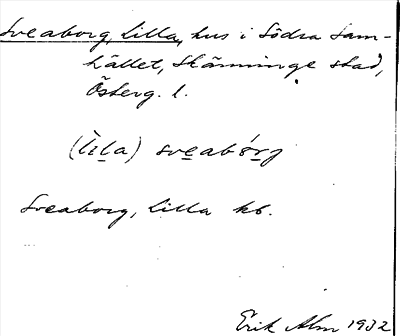 Sveaborg, Lilla, hus i Södra Sam-
hället, Skänninge stad,
Österg. l.
(lìla) sveabórj
Sveaborg, Lilla kb.
Erik Alm 1932